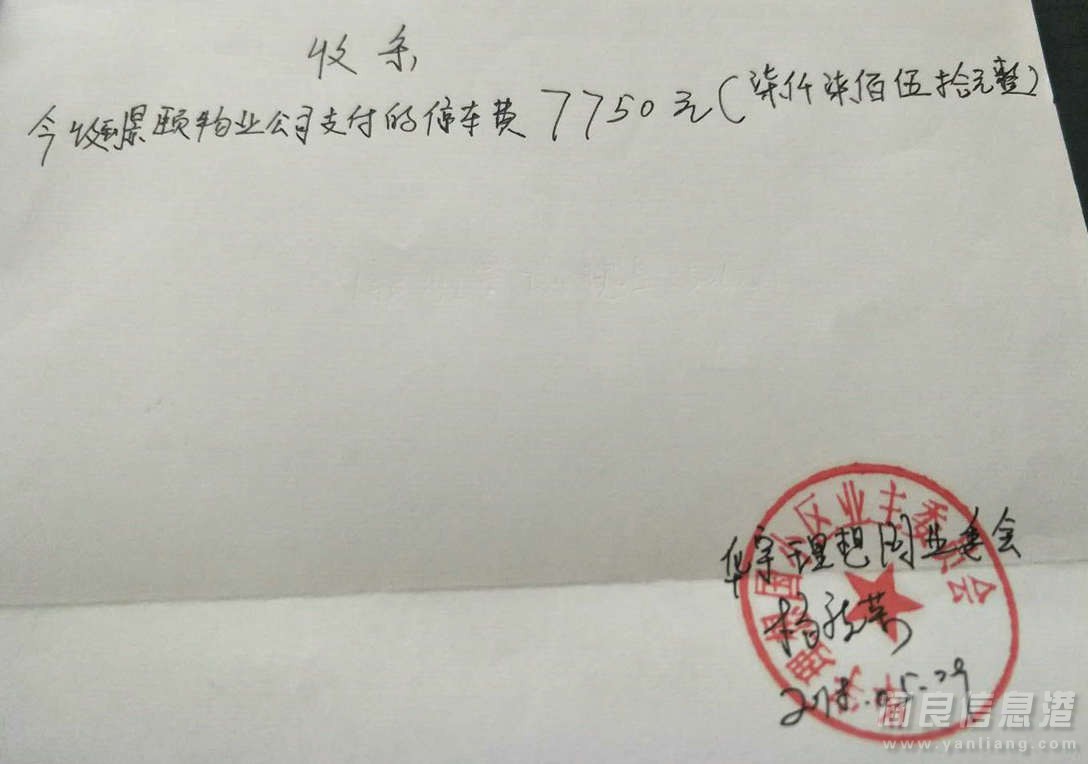 收条
今收到景颐物业公司支付的停车费7750元(柒仟柒佰伍拾元整)
华宇理想国业委会
2018.05.29
理想国小区业主委员会
阎良信息港
www.yanliang.com